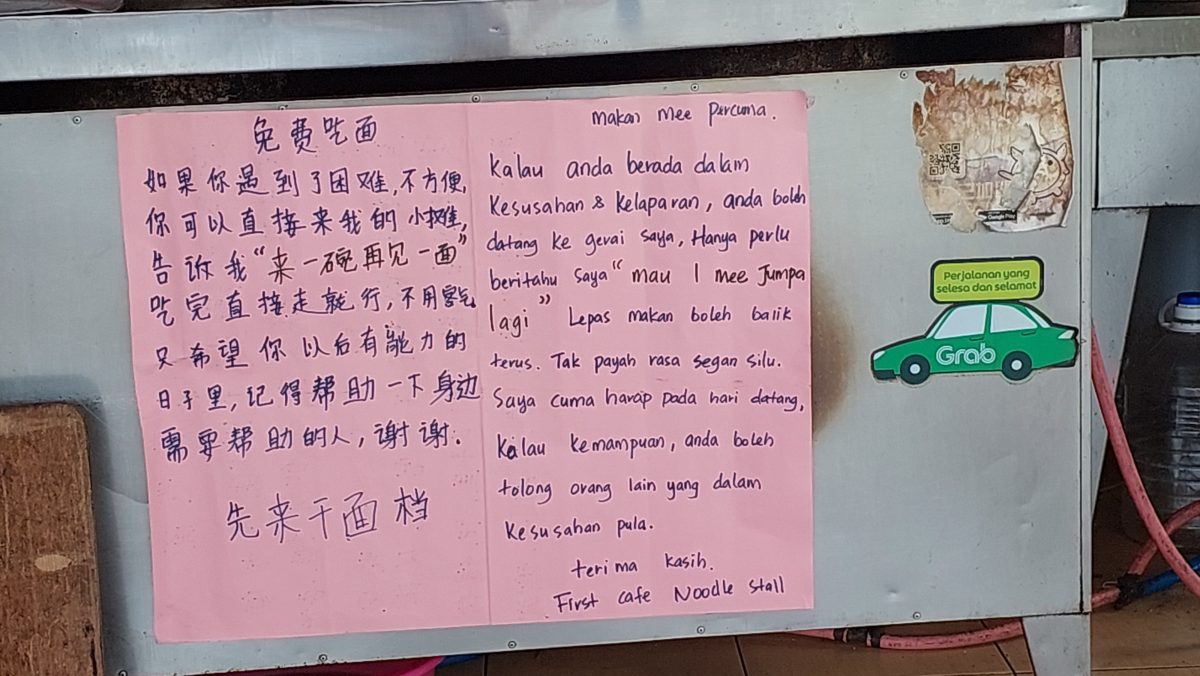 免费吃面
如果你遇到了困难,不方便,
你可以直接来我的小摊,
告诉我“来一碗再见一面”
吃完直接走就行,不用客气
只希望你以后有能力的
日子里,记得帮助一下身边
需要帮助的人,谢谢.
先来干面档
makan mee percuma.
Kalau anda berada dalam
Kesusahan & Kelaparan, anda boleh
datang ke gerai saya, Hanya perlu
beritahu saya “mau 1 mee Jumpa
lagi” Lepas makan boleh balik
terus. Tak payah rasa segan silu.
Saya cuma harap pada hari datang,
Kalau Kemampuan, anda boleh
tolong orang lain yang dalam
Kesusahan pula.
terima kasih.
First cafe Noodle Stall
Perjalanan yang
selesa dan selamat
Grab
Google Play